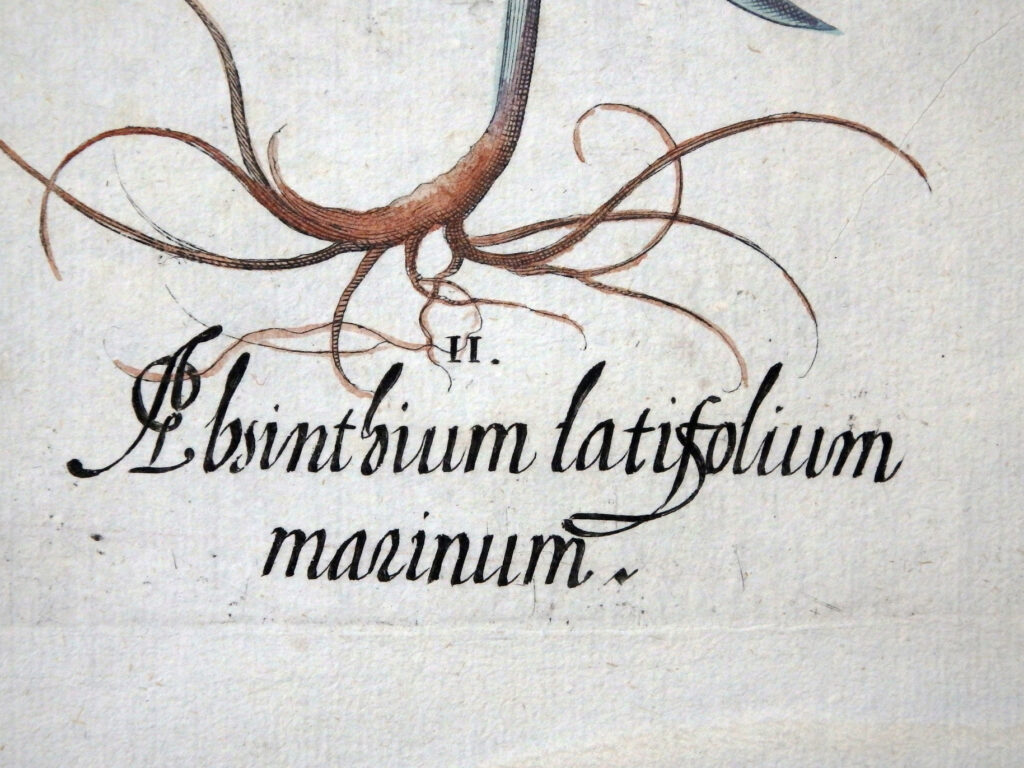 II.
Absinthium latifolium
marinum.